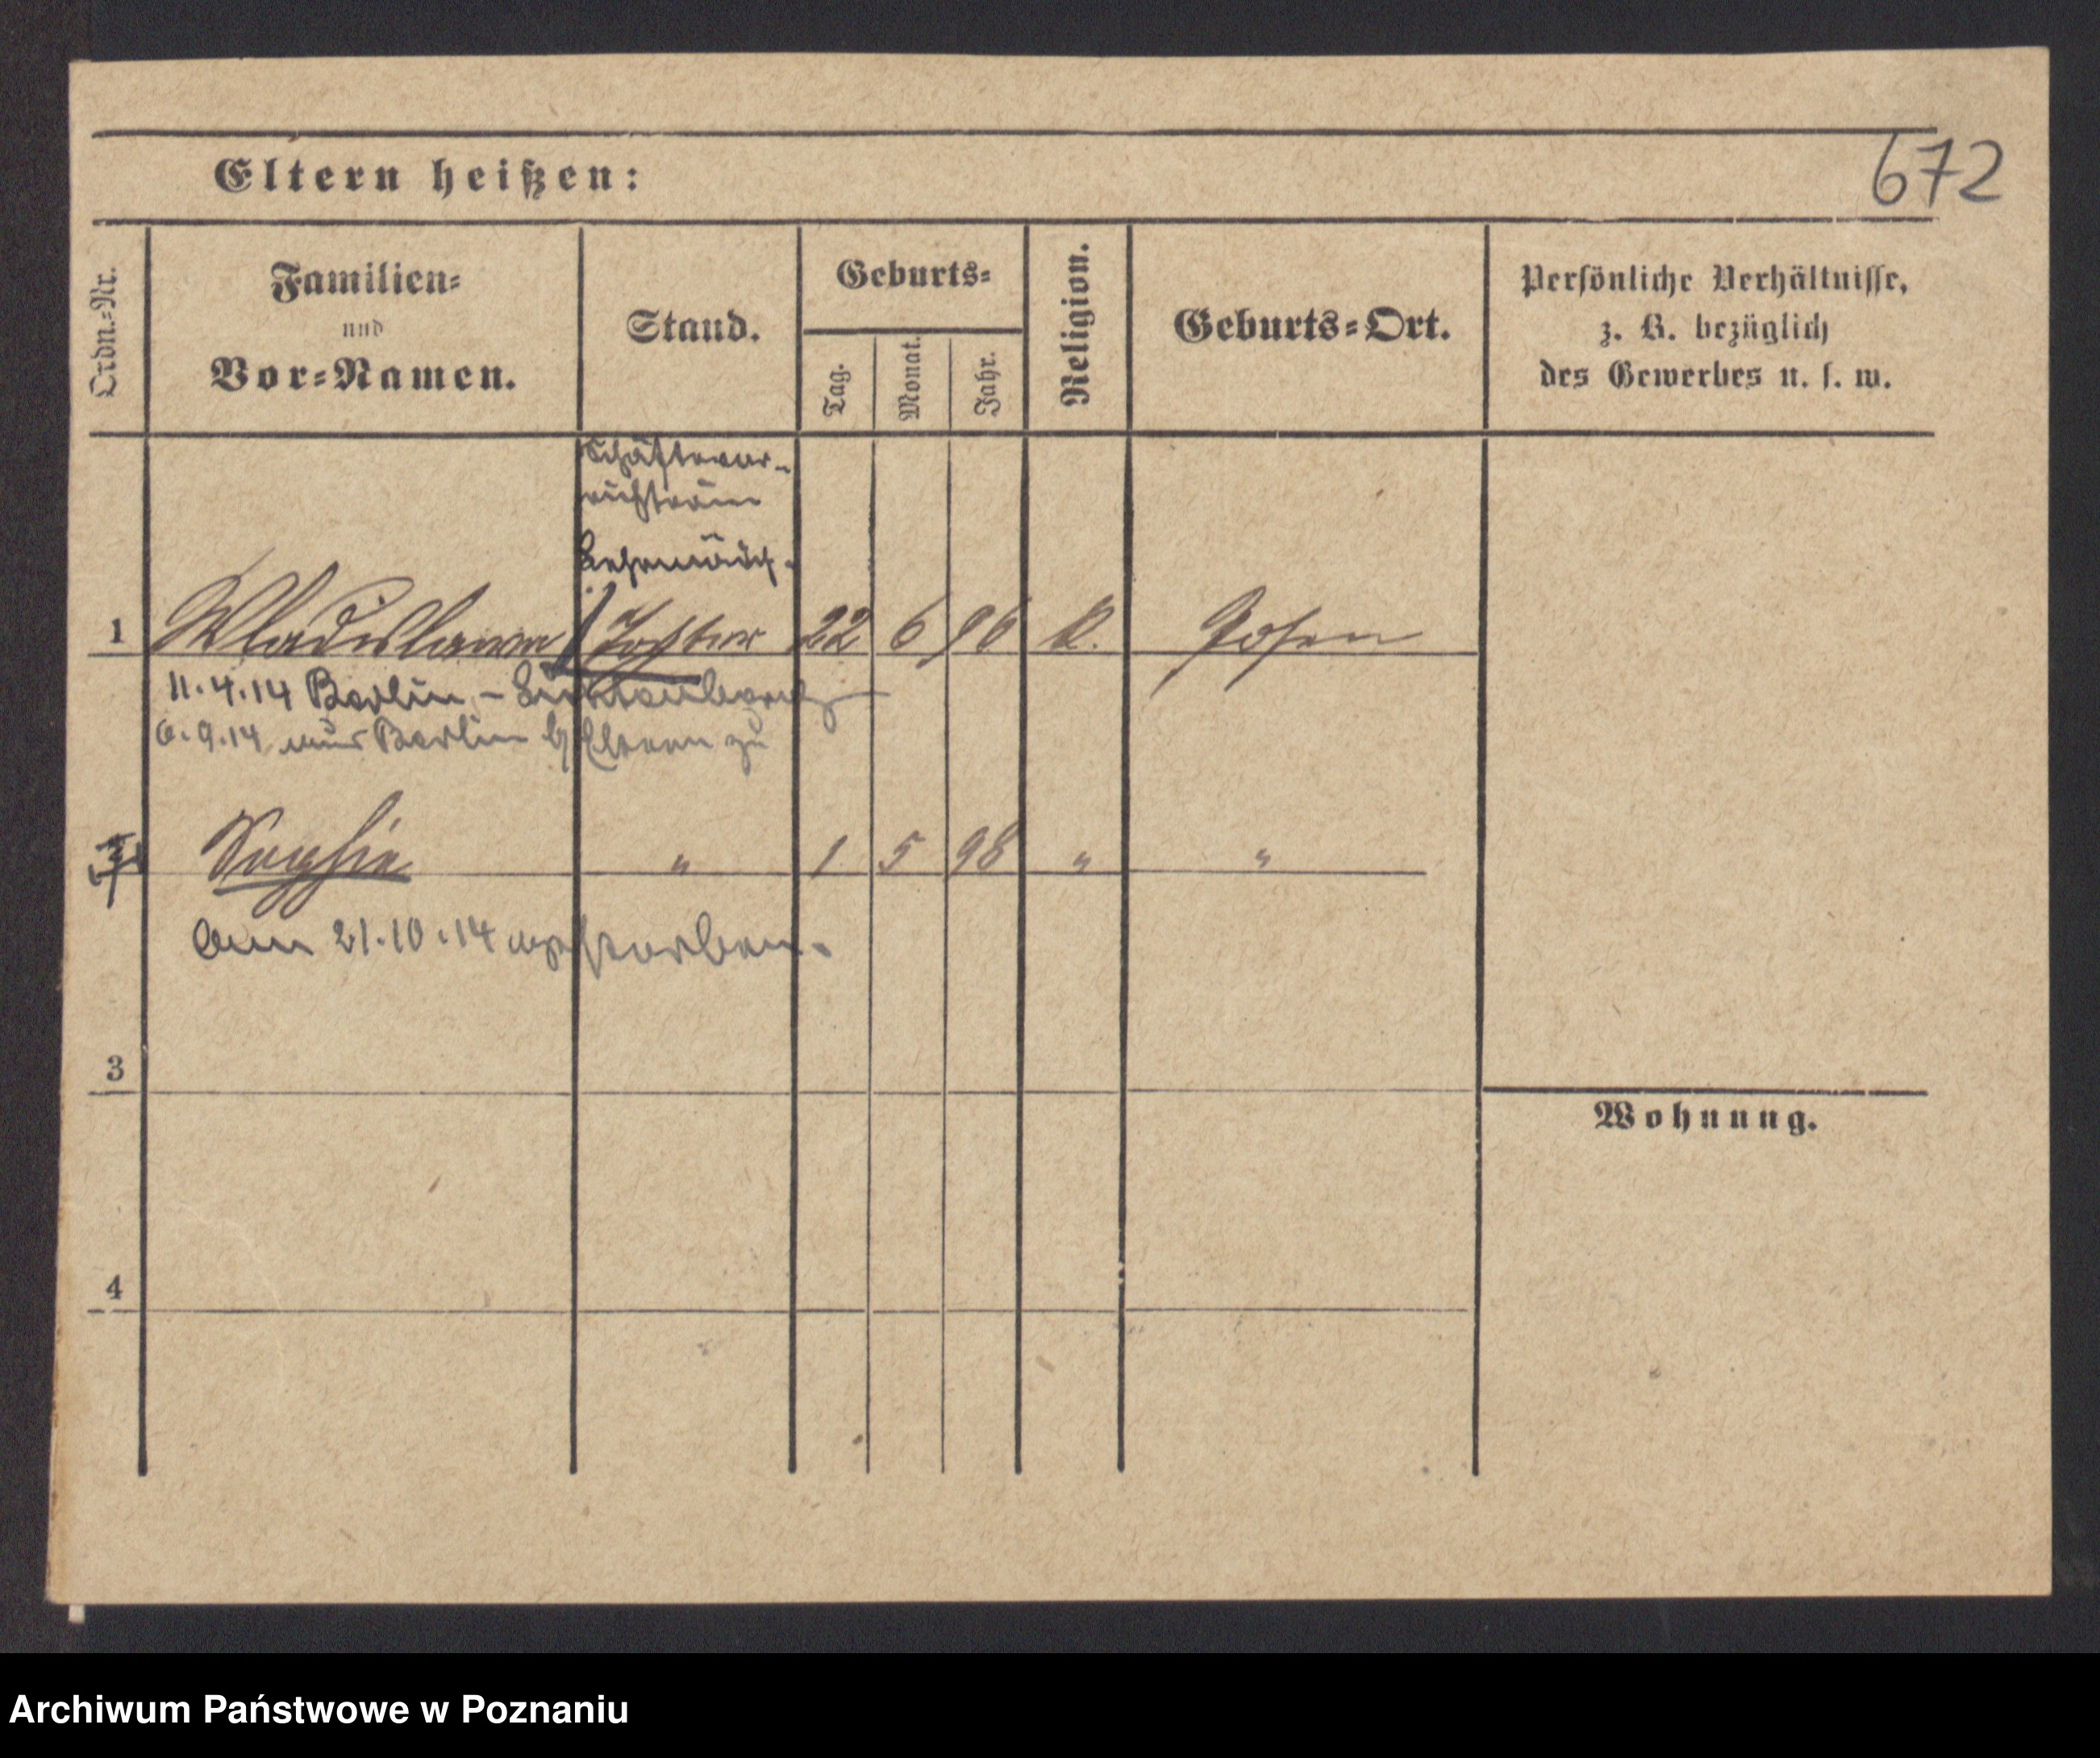 672
Eltern heißen:
Ordn.-Nr.
Familien-
und
Vor-Namen.
Stand.
Geburts-
Tag.
Monat.
Jahr.
Religion.
Geburts-Ort.
Persönliche Verhältnisse,
z. B. bezüglich
des Gewerbes u. s. w.
Lehrmädch.
1 Wladislawa Tochter 22 6 96 K. Posen
11.4.14 Berlin - Lichtenberg
6.9.14 aus Berlin Eltern zu
Sophie " 1 5 98 " "
Am 21.10.14 verstorben.
3
Wohnung.
4
Archiwum Państwowe w Poznaniu